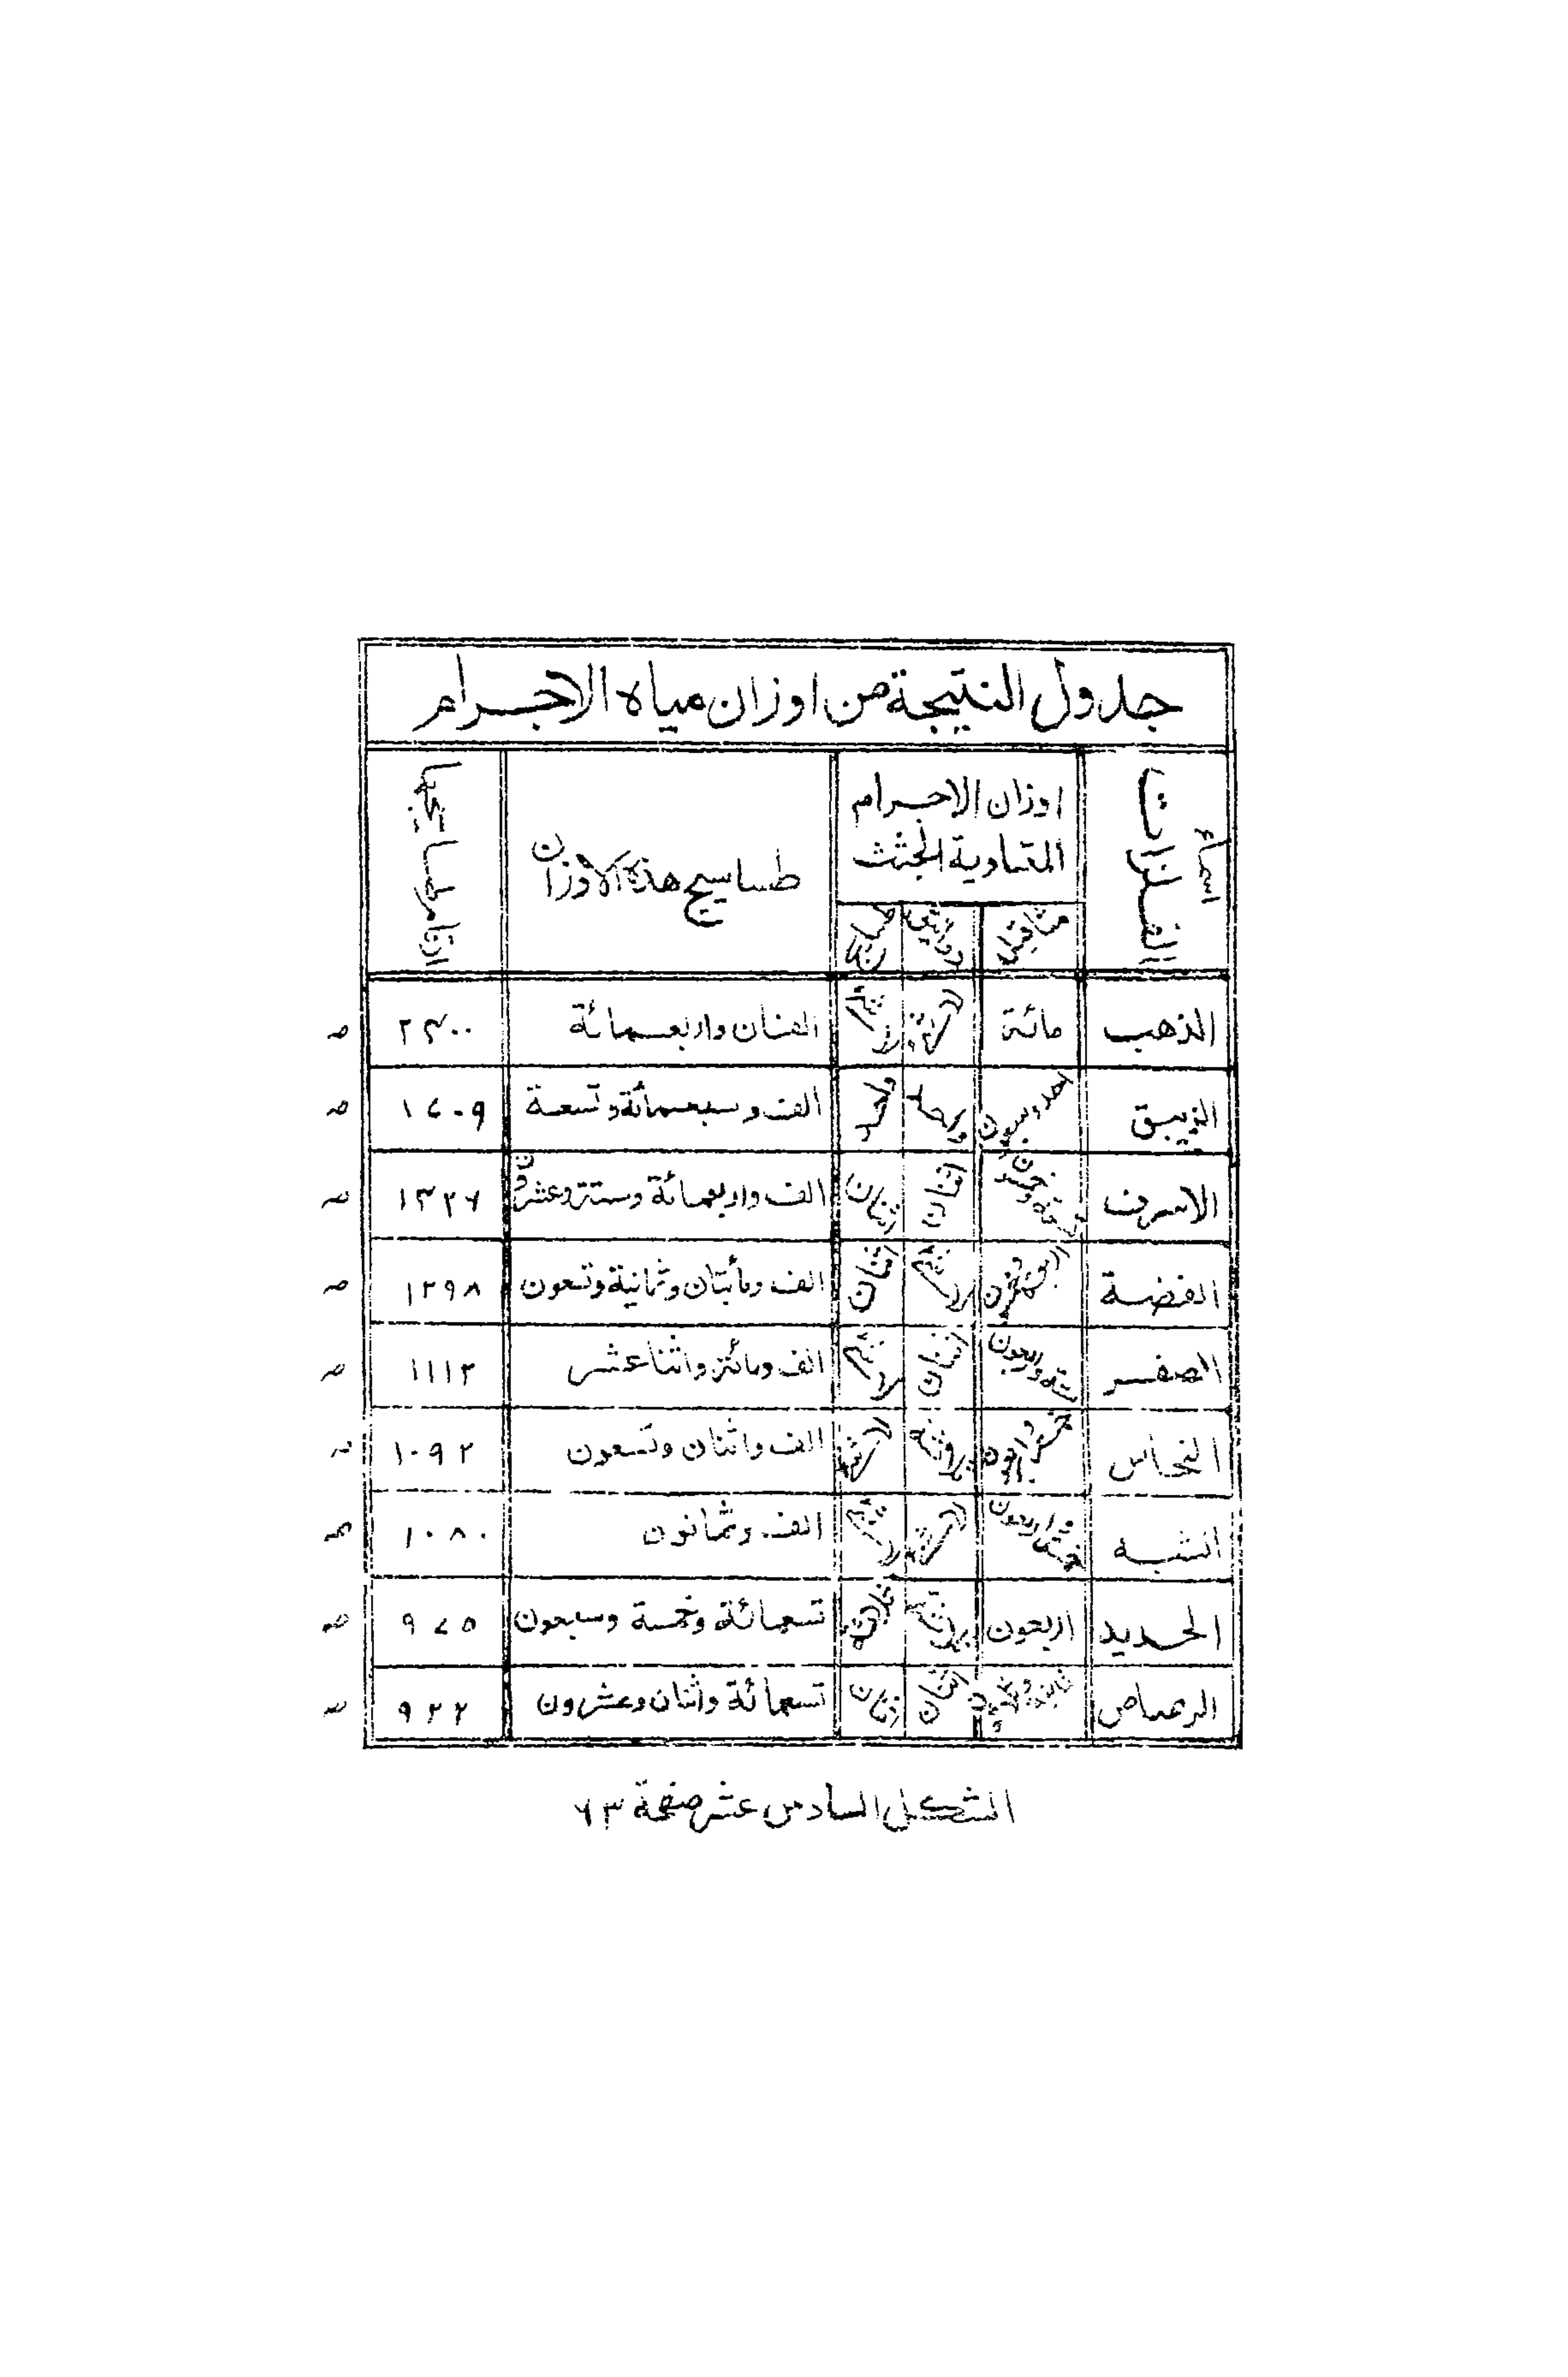 جدول النتيجة من اوزان مياه الاجرام
اسماء الفلزات اوزان الاجرام المتساوية الجثث طساسيج هذه الاوزان ارقام طساسيجها
مثاقيل دوانيق
الذهب مائة الفان واربعمائة ٢٤٠٠ صه
الزيبق احد وسبعون واحد واحد الف وسبعمائة وتسعة ١٧٠٩ صه
الاسرف تسعة وخمسون اثنان اثنان الف واربعمائة وستة وعشرون ١٤٢٦ صه
الفضة اثنان الف ومأتان وثمانية وتسعون ١٢٩٨ صه
الصفر ستة واربعون اثنان الف ومائة واثنا عشر ١١١٢ صه
النحاس خمسة واربعون ثلاثة الف واثنان وتسعون ١٠٩٢ صه
الشبه الف وثمانون ١٠٨٠ صه
الحديد اربعون ثلاثة تسعمائة وخمسة وسبعون ٩٧٥ صه
الرصاص ثمانية وثلاثون اثنان اثنان تسعمائة واثنان وعشرون ٩٢٢ صه
الشكل السادس عشر صفحة ٦٣